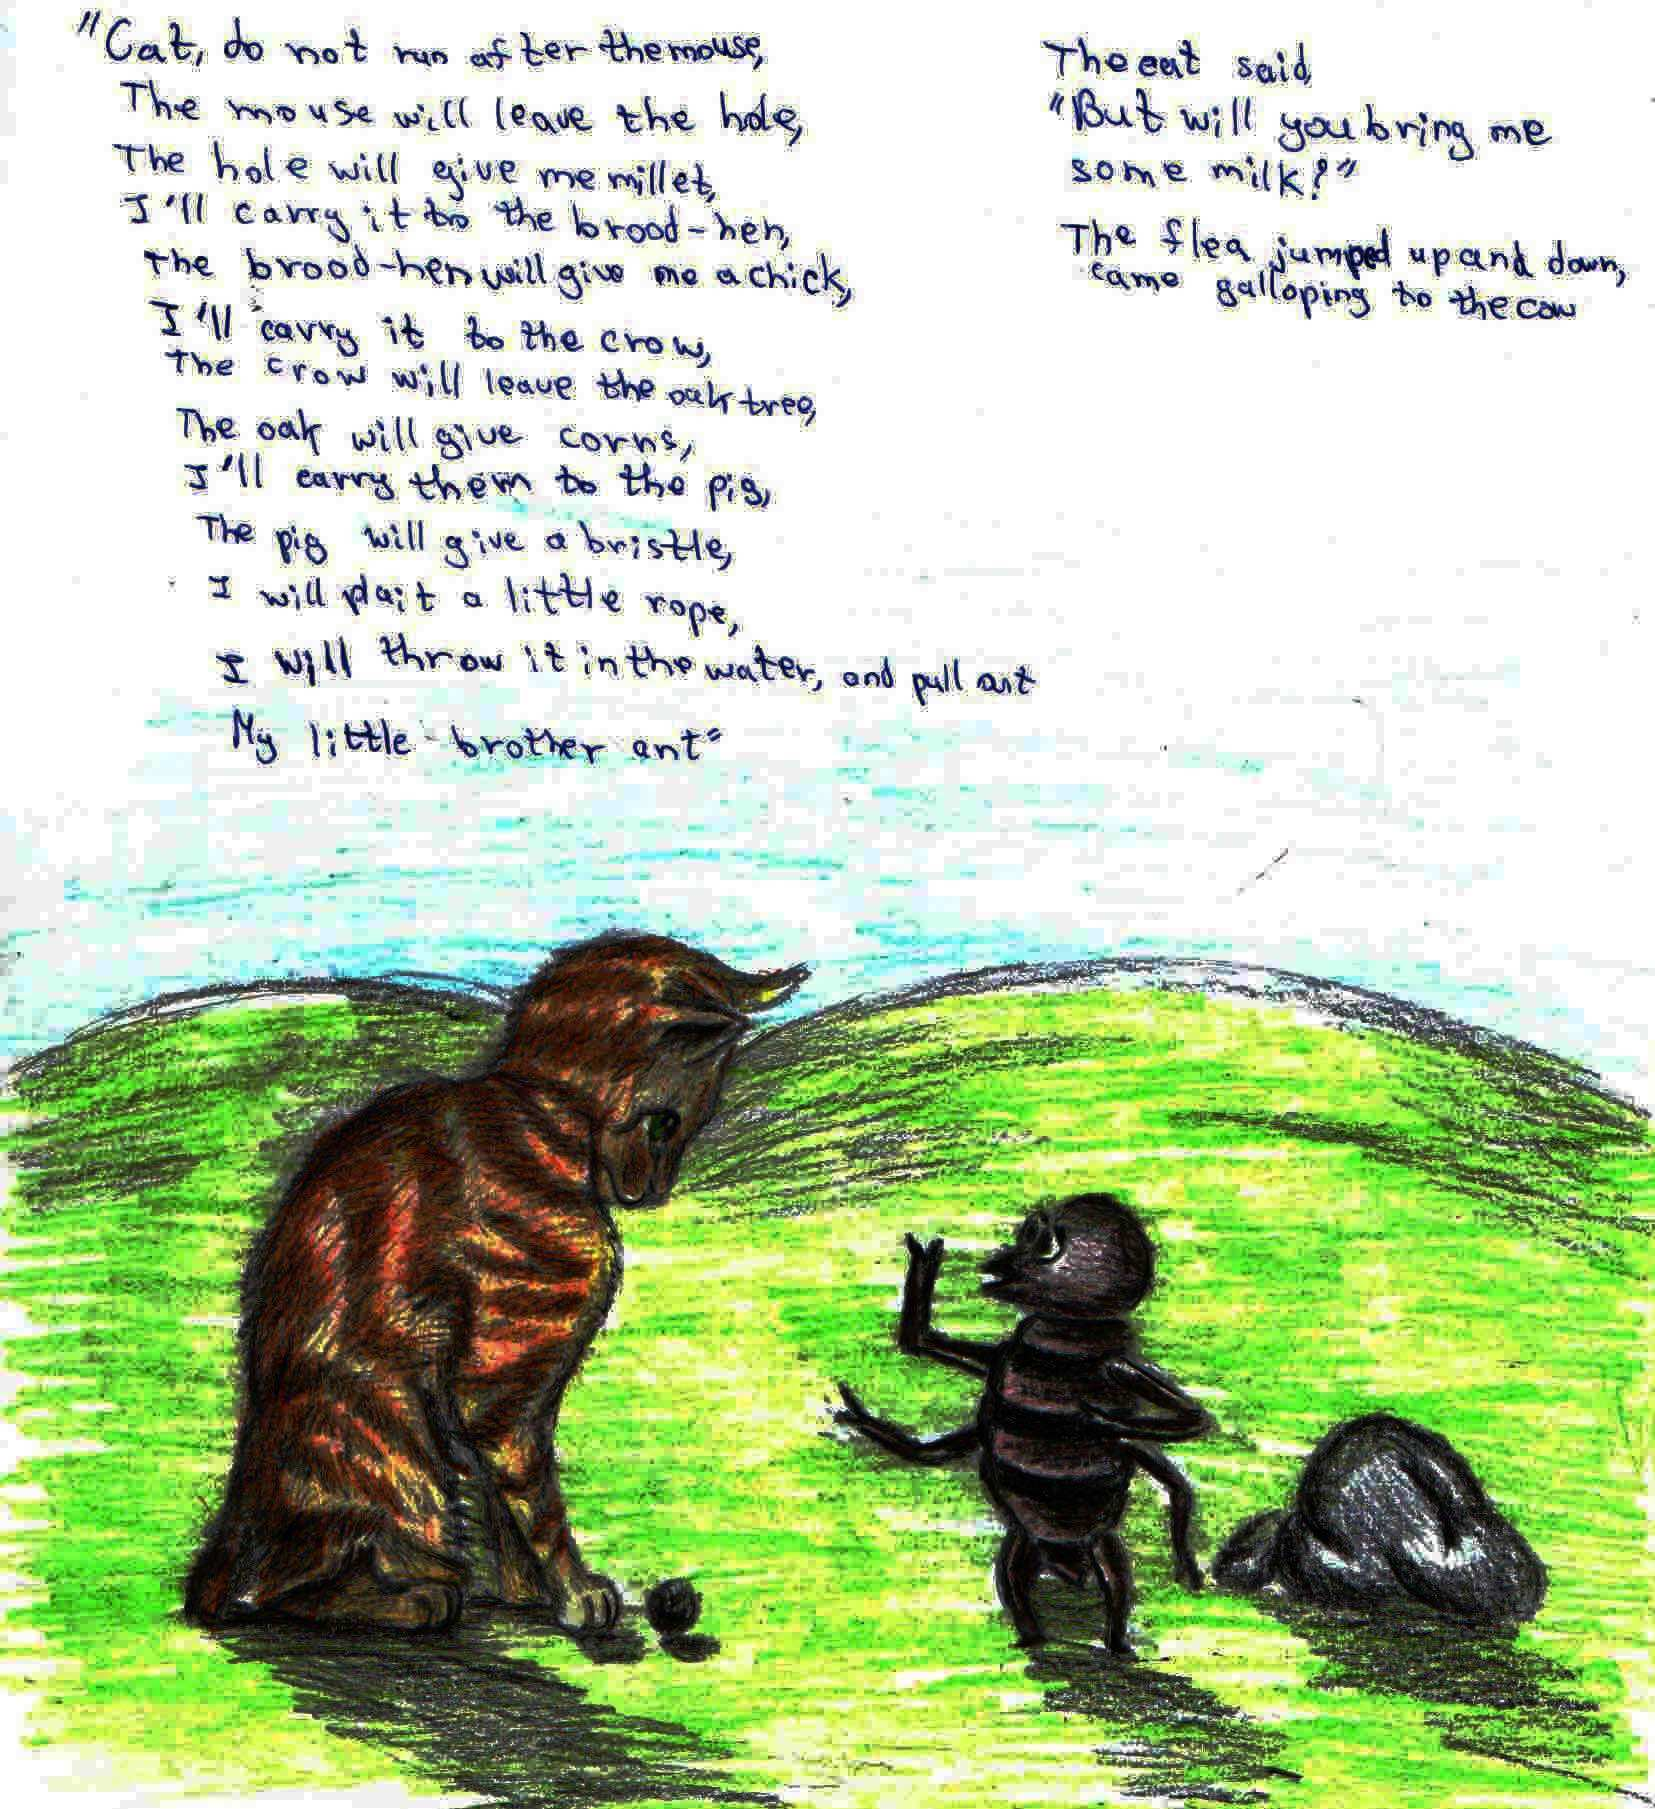 "Cat, do not run after the mouse,
The mouse will leave the hole,
The hole will give me millet,
I'll carry it to the brood-hen,
The brood-hen will give me a chick,
I'll carry it to the crow,
The crow will leave the oak tree,
The oak will give corns,
I'll carry them to the pig,
The pig will give a bristle,
I will plait a little rope,
I will throw it in the water, and pull out
My little brother ant"
The cat said,
"But will you bring me
some milk?"
The flea jumped up and down,
came galloping to the cow